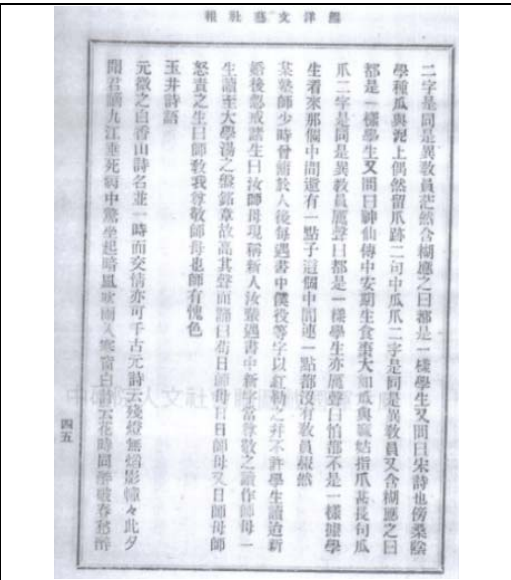 鯤洋文藝社報
二字是同是異敎員茫然含糊應之曰都是一樣學生又問曰宋詩也傍桑陰
學種瓜與泥上偶然留爪跡二句中瓜爪二字是同是異敎員又含糊應之曰
都是一樣學生又問曰神仙傳中安期生食棗大如瓜與麻姑指爪甚長句瓜
爪二字是同是異敎員應聲曰都是一樣學生亦應聲曰怕都不是一樣據學
生看來那個中間還有一點子這個中間連一點都沒有敎員赧然
某塾師少時曾傭於人後每遇書中僕役等字以紅勒之幷不許學生讀迨新
婚後認戒諸生曰汝師母現稱新人汝輩遇書中新字當尊敬之讀作師母一
生讀至大學湯之盤銘章故高其聲而誦曰苟日師母日日師母又日師母師
怒責之生曰師敎我尊敬師母也師有愧色
玉井詩話
元微之白香山詩名並一時而交情亦可千古元詩云殘燈無焰影幢々此夕
聞君謫九江垂死病中驚坐起暗風吹雨入寒窗白詩云花時同醉破春愁醉
四五